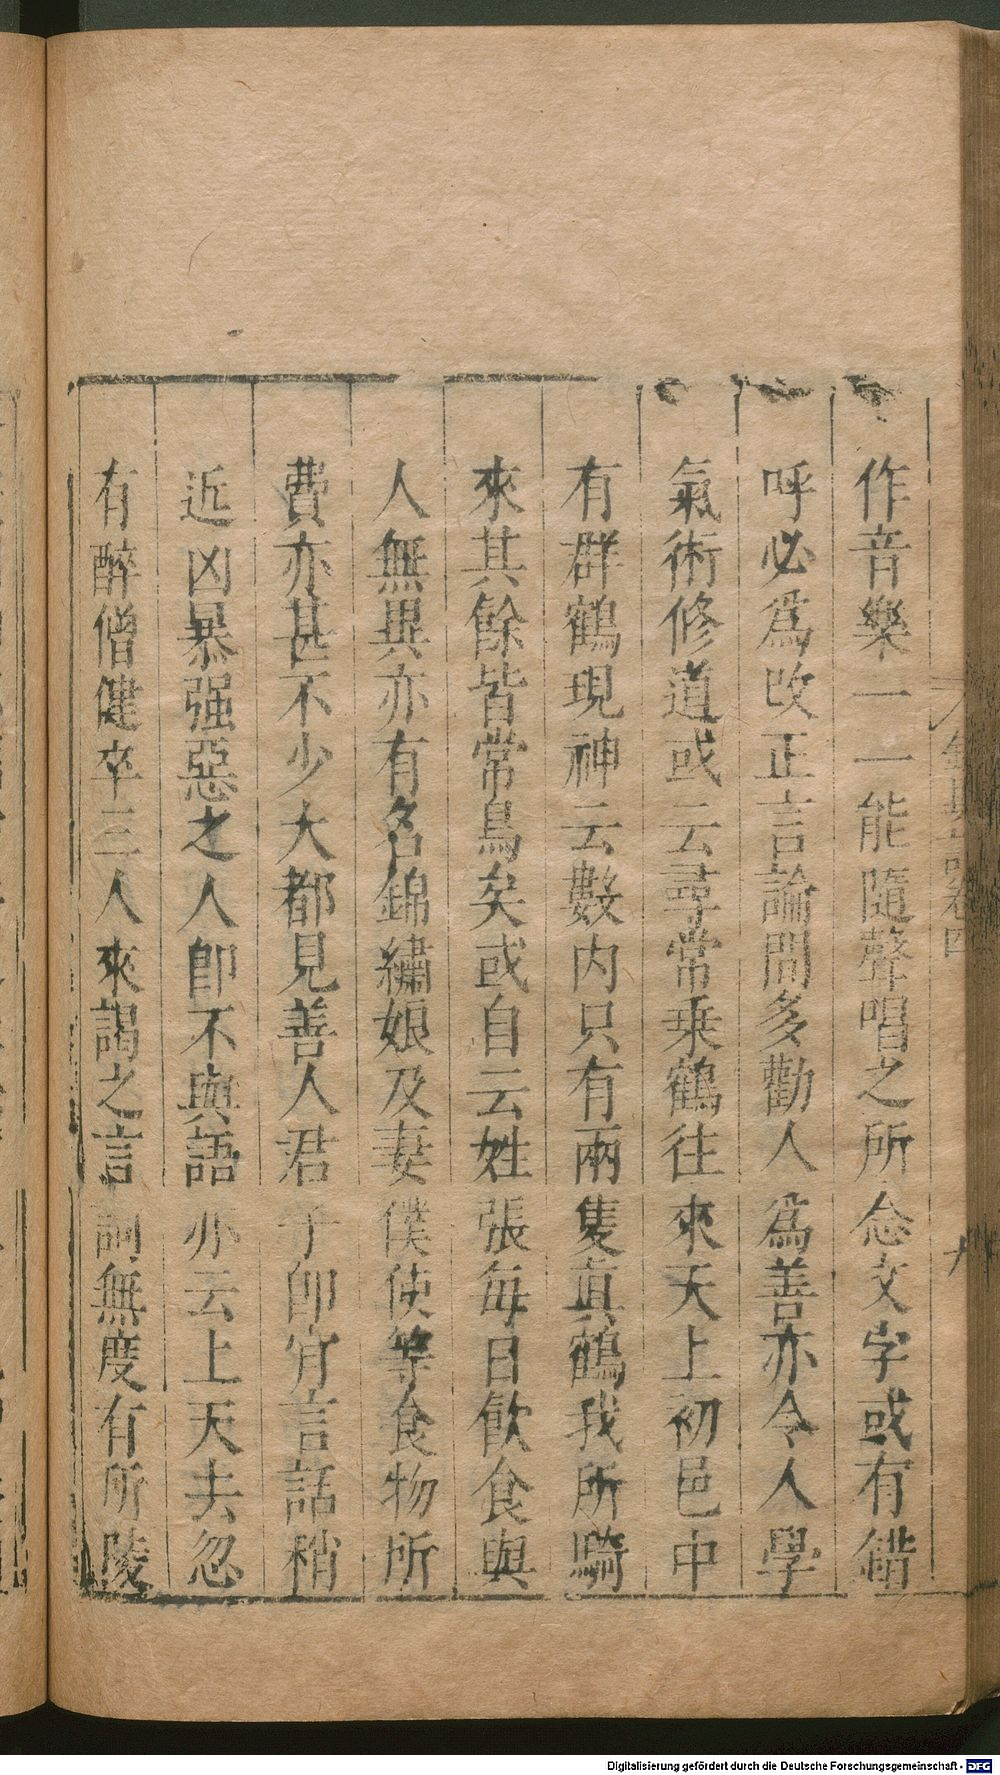 作音樂一一能隨聲唱之所念文字或有錯
呼必爲改正言論間多勸人爲善亦令人學
氣術修道或云尋常乗鶴往來天上初邑中
有群鶴現神云數内只有兩隻真鶴我所騎
來其餘皆常鳥矣或自云姓張每日飲食與
人無異亦有名錦繡娘及妻僕使等食物所
費亦甚不少大都見善人君子即肯言話稍
近凶暴强惡之人即不與語亦云上天去忽
有醉僧健卒三人來謁之言詞無度有所陵
卷四
九
Digitalisierung gefördert durch die Deutsche Forschungsgemeinschaft - DFG